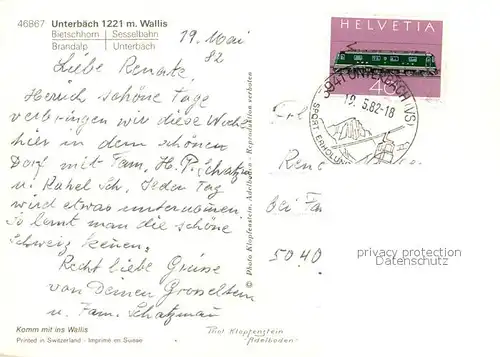 46867 Unterbäch 1221 m. Wallis
Bietschhorn Sesselbahn
Brandalp Unterbäch
19. Mai
82
Liebe Renate,
Herrlich schöne Tage
verbringen wir diese Woche
hier in dem schönen
Dorf mit Fam. H.P. Schatzm
u. Rahel Sch. Jeden Tag
wird etwas unternommen.
So lernt man die schöne
Schweiz kennen.
Recht liebe Grüsse
von Deinen Grosseltern
u. Fam. Schatzman
Komm mit ins Wallis
Printed in Switzerland - Imprimé en Suisse
© Photo Klopfenstein, Adelboden - Reproduktion verboten
Phot Klopfenstein
"Adelboden"
HELVETIA
40
3941 UNTERBÄCH (VS)
19.5.82-18
SPORT ERHOLUN
Frl
Rena
bei Fam
5040
privacy protection
Datenschutz